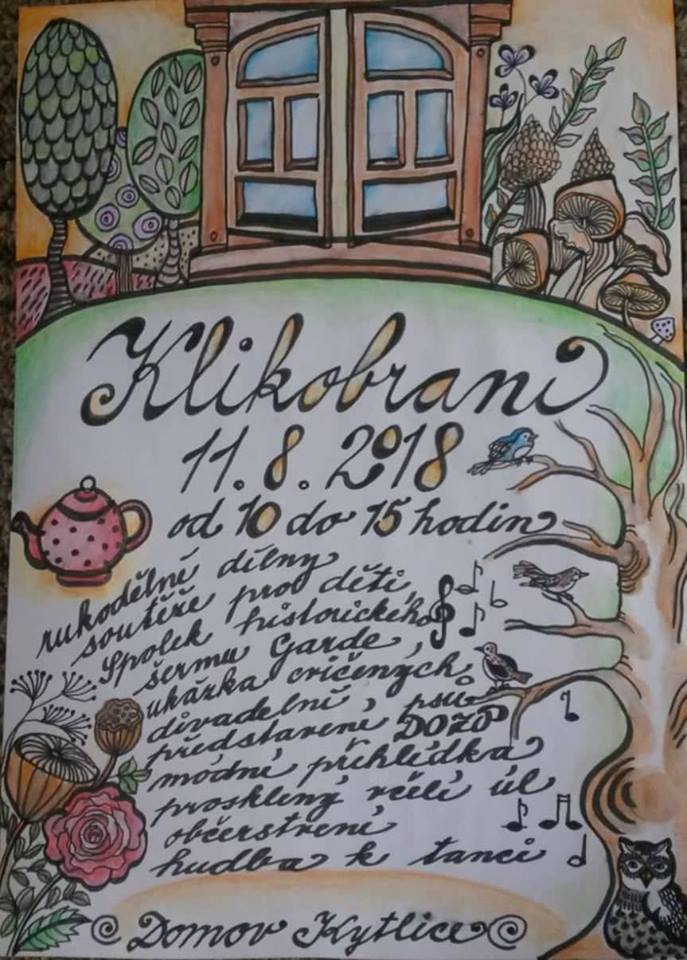 Klikobraní
11. 8. 2018
od 10 do 15 hodin
rukodělné dílny
soutěže pro děti,
Spolek historického
šermu Garde,
ukázka cvičených
psů
divadelní
představení, DOZP
módní přehlídka
prosklený včelí úl
občerstvení
hudba k tanci
Domov Kytlice